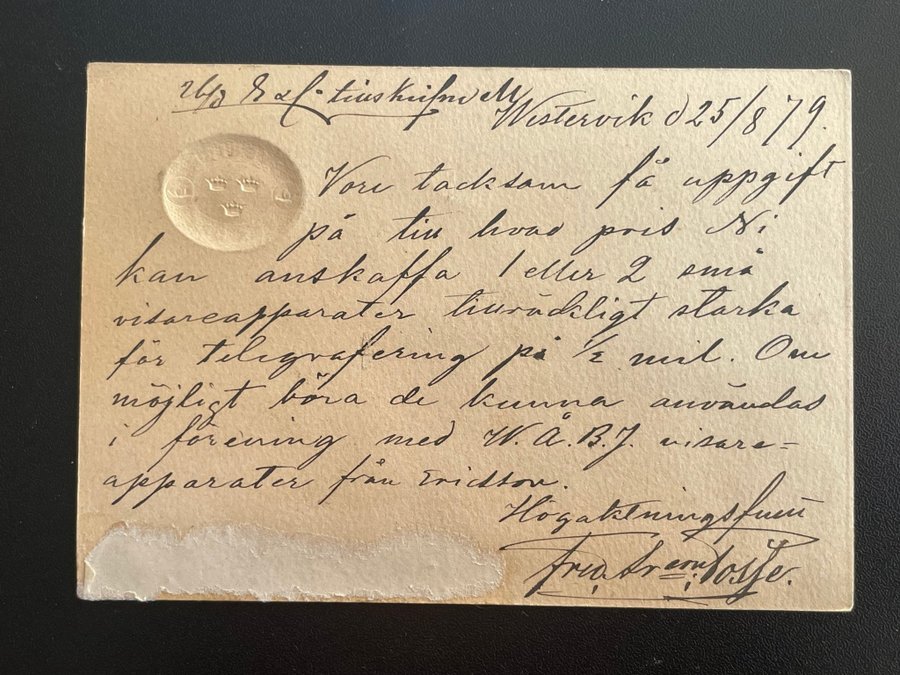 Westervik d 25/8 79.
Vore tacksam få uppgift
på till hvad pris Ni
kan anskaffa 1 eller 2 små
visareapparater tillräckligt starka
för telegrafering på 1/2 mil. Om
möjligt böra de kunna användas
i förening med W.Å.B.J. visare=
apparater från Ericsson.
Högaktningsfullt